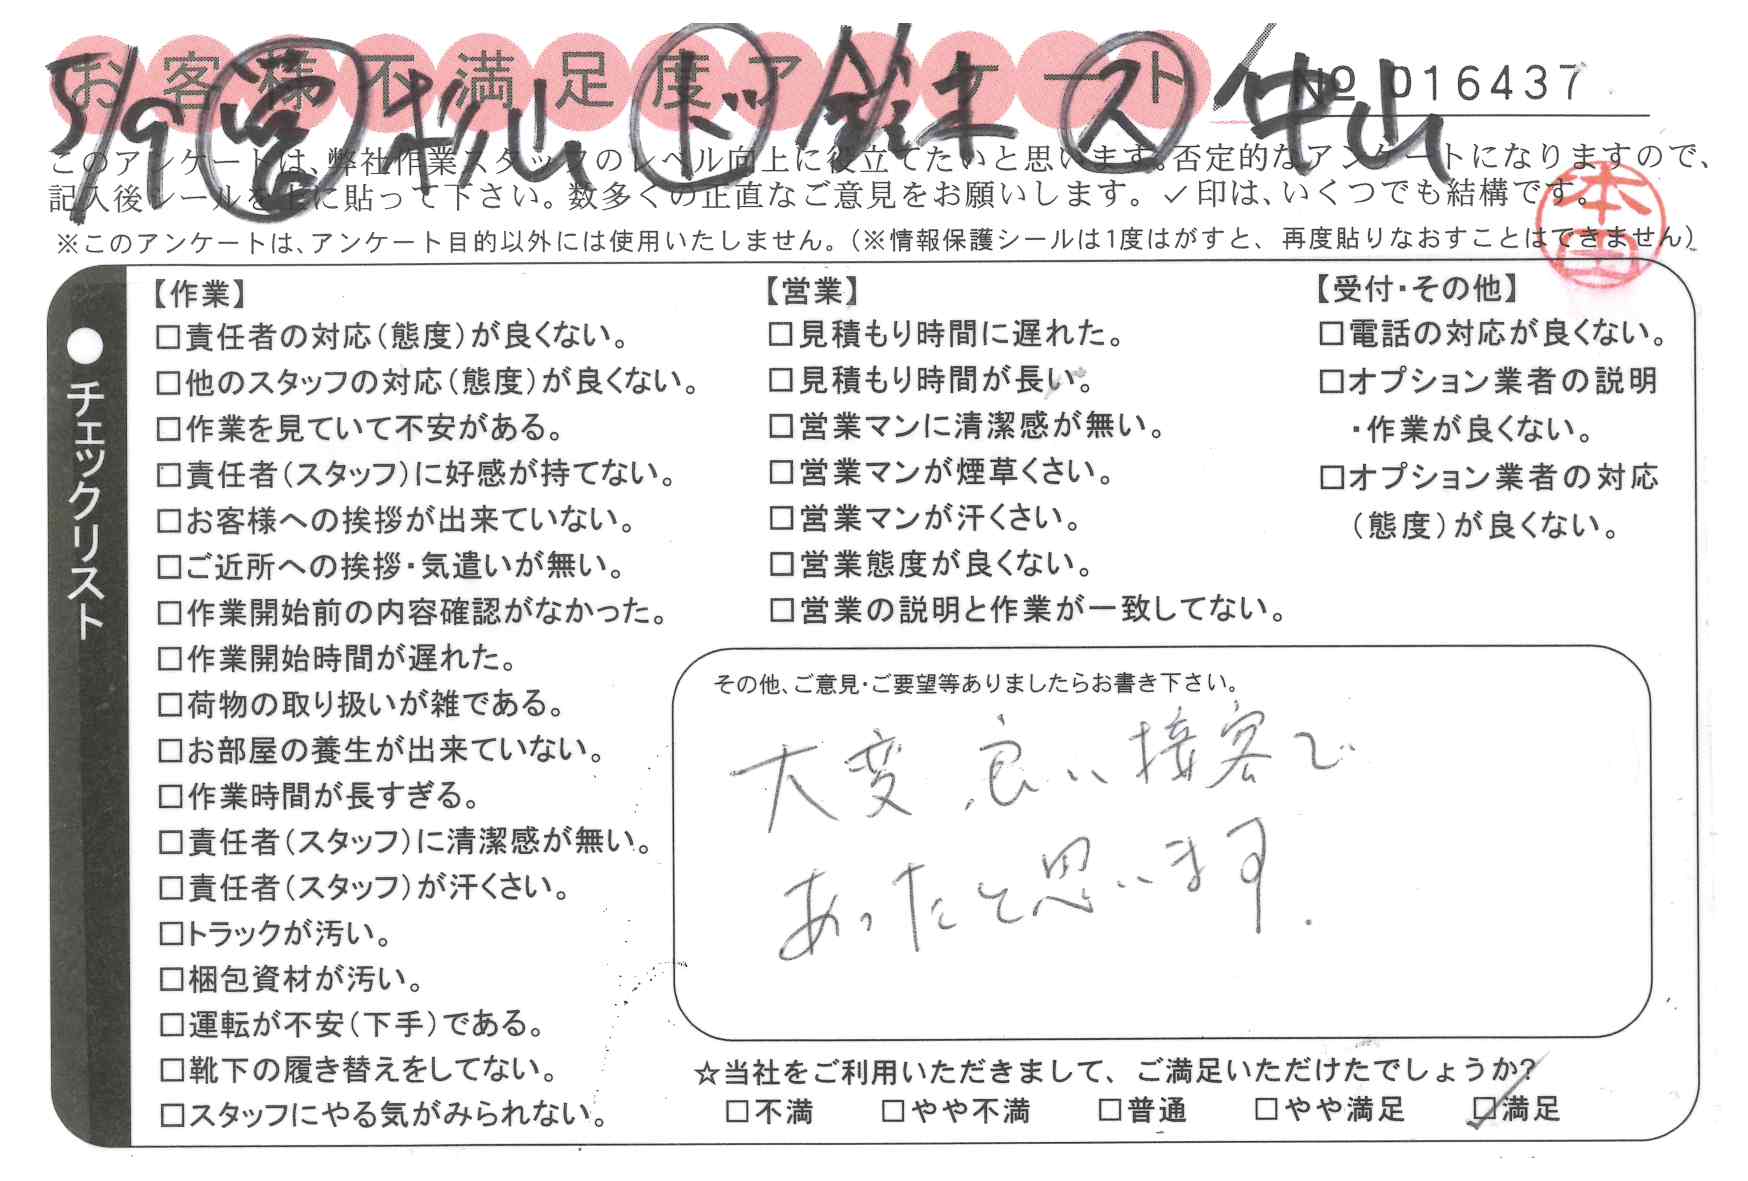 お客様不満足度アンケート
№ 016437
5/9 営 杉山 ド 鈴木 ス 中山
このアンケートは、弊社作業スタッフのレベル向上に役立てたいと思います。否定的なアンケートになりますので、
記入後シールを上に貼って下さい。数多くの正直なご意見をお願いします。✓印は、いくつでも結構です。
※このアンケートは、アンケート目的以外には使用いたしません。(※情報保護シールは1度はがすと、再度貼りなおすことはできません)
本田
●チェックリスト
【作業】
□責任者の対応(態度)が良くない。
□他のスタッフの対応(態度)が良くない。
□作業を見ていて不安がある。
□責任者(スタッフ)に好感が持てない。
□お客様への挨拶が出来ていない。
□ご近所への挨拶・気遣いが無い。
□作業開始前の内容確認がなかった。
□作業開始時間が遅れた。
□荷物の取り扱いが雑である。
□お部屋の養生が出来ていない。
□作業時間が長すぎる。
□責任者(スタッフ)に清潔感が無い。
□責任者(スタッフ)が汗くさい。
□トラックが汚い。
□梱包資材が汚い。
□運転が不安(下手)である。
□靴下の履き替えをしてない。
□スタッフにやる気がみられない。
【営業】
□見積もり時間に遅れた。
□見積もり時間が長い。
□営業マンに清潔感が無い。
□営業マンが煙草くさい。
□営業マンが汗くさい。
□営業態度が良くない。
□営業の説明と作業が一致してない。
【受付・その他】
□電話の対応が良くない。
□オプション業者の説明
・作業が良くない。
□オプション業者の対応
(態度)が良くない。
その他、ご意見・ご要望等ありましたらお書き下さい。
大変、良い接客で
あったと思います.
☆当社をご利用いただきまして、ご満足いただけたでしょうか?
□不満 □やや不満 □普通 □やや満足 ☑満足